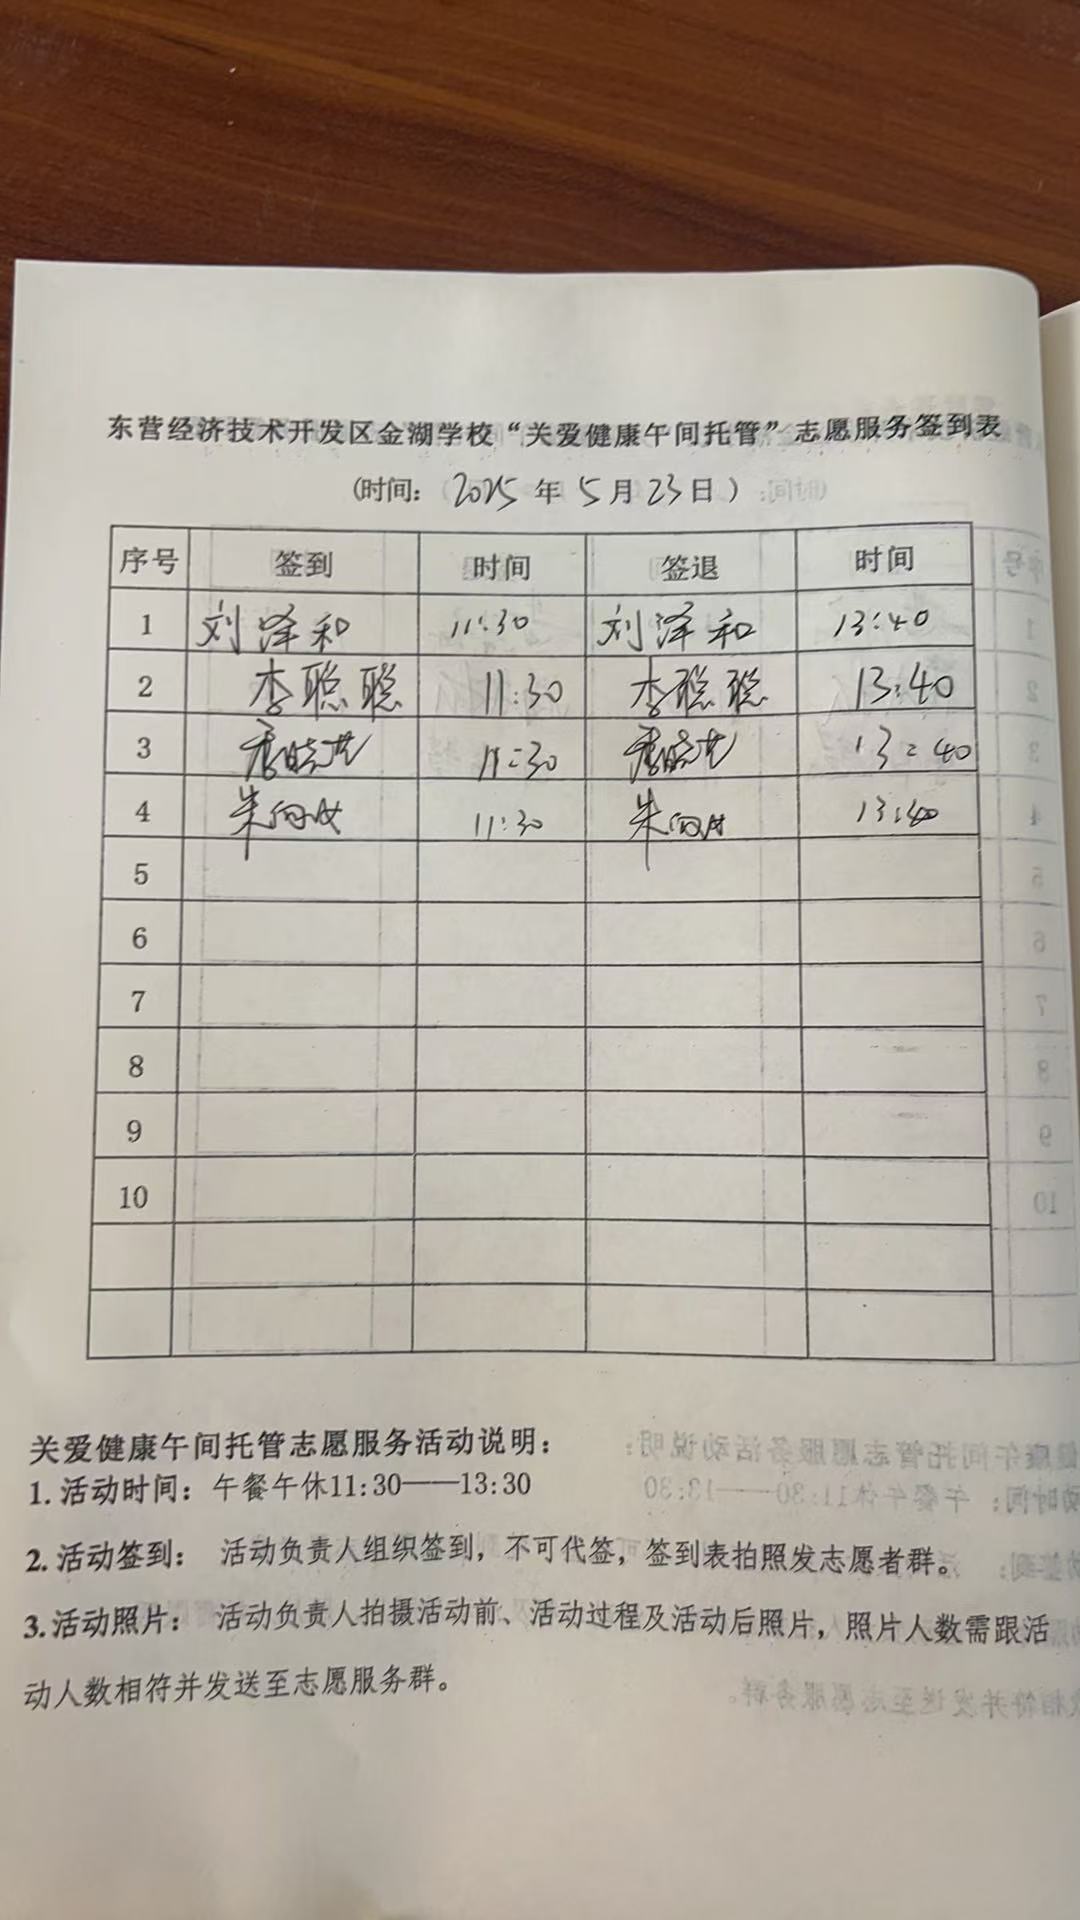 东营经济技术开发区金湖学校“关爱健康午间托管”志愿服务签到表
(时间: 2025 年 5 月 23 日)
序号 签到 时间 签退 时间
1 刘泽和 11:30 刘泽和 13:40
2 李聪聪 11:30 李聪聪 13:40
3 11:30 13:40
4 朱 11:30 朱 13:40
5
6
7
8
9
10
关爱健康午间托管志愿服务活动说明:
1.活动时间: 午餐午休11:30——13:30
2.活动签到: 活动负责人组织签到，不可代签，签到表拍照发志愿者群。
3.活动照片: 活动负责人拍摄活动前、活动过程及活动后照片，照片人数需跟活
动人数相符并发送至志愿服务群。